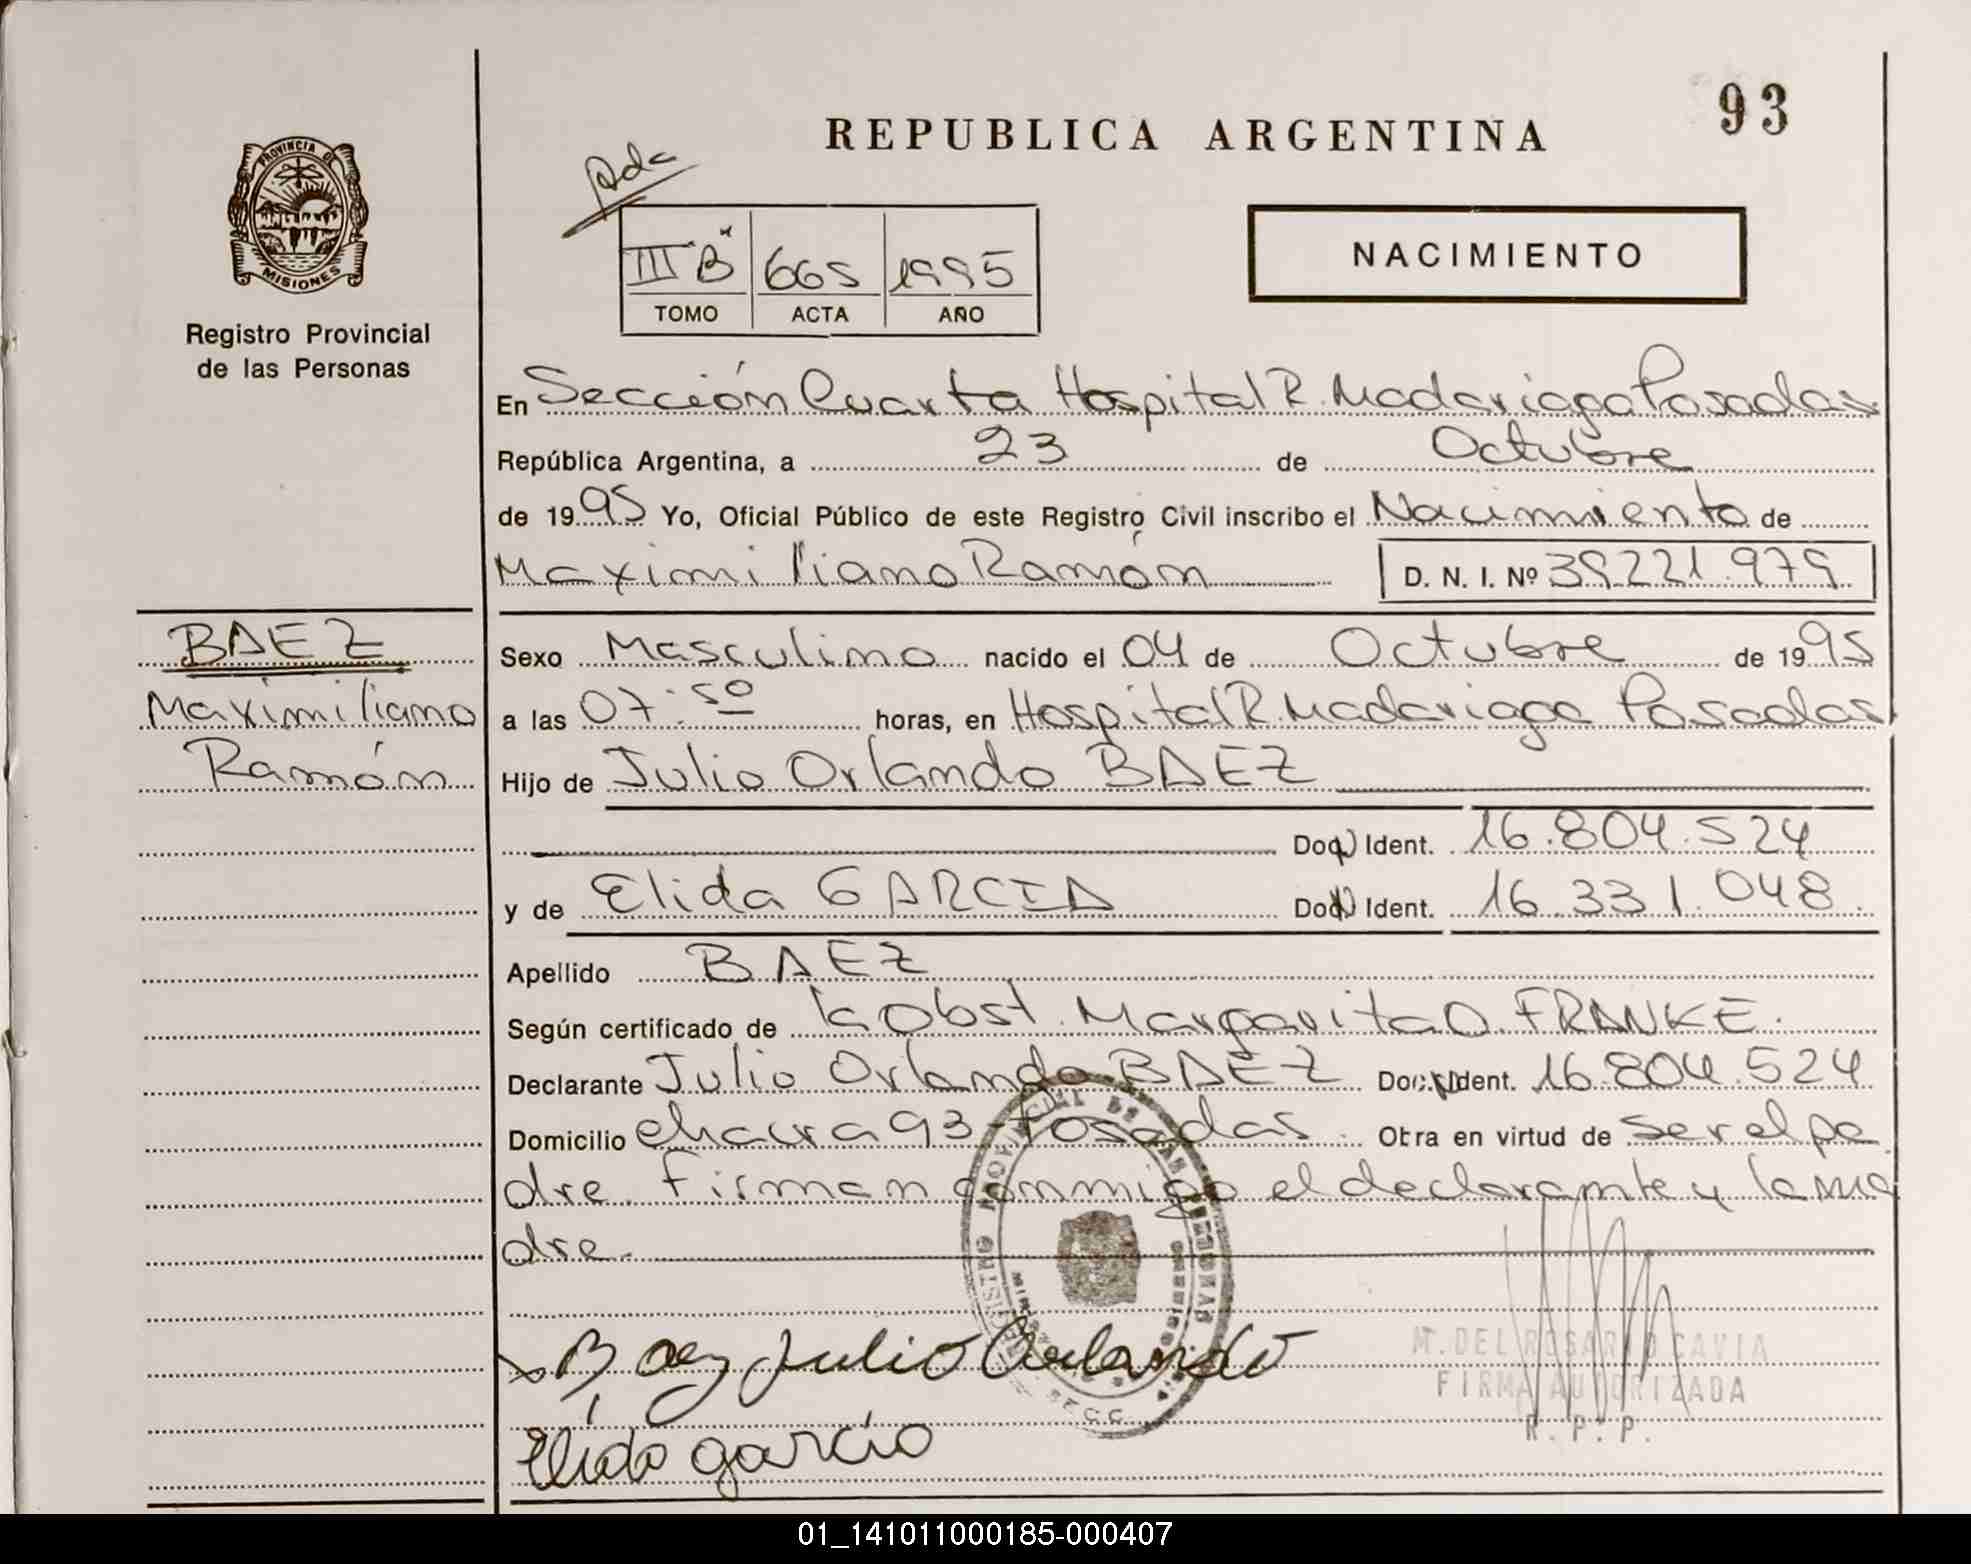 93
REPUBLICA ARGENTINA
PROVINCIA DE
MISIONES
Registro Provincial
de las Personas
III "B" 665 1995
TOMO ACTA AÑO
NACIMIENTO
En Sección Cuarta Hospital R. Madariaga Posadas
República Argentina, a 23 de Octubre
de 1995 Yo, Oficial Público de este Registro Civil inscribo el Nacimiento de
Maximiliano Ramón D. N. I. Nº 39221.979
BAEZ
Maximiliano
Ramón
Sexo Masculino nacido el 04 de Octubre de 1995
a las 07:50 horas, en Hospital R. Madariaga Posadas
Hijo de Julio Orlando BAEZ
Doc. Ident. 16.804.524
y de Elida GARCIA Doc. Ident. 16.331.048
Apellido BAEZ
Según certificado de la Obst. Margarita O. FRANKE.
Declarante Julio Orlando BAEZ Doc. Ident. 16.804.524
Domicilio chacra 93 - Posadas. Obra en virtud de ser el pa
dre. Firman conmigo el declarante y la ma
dre.
Baez Julio Orlando
M. DEL ROSARIO CAVIA
FIRMA AUTORIZADA
R. P. P.
Elida garcia
01_141011000185-000407